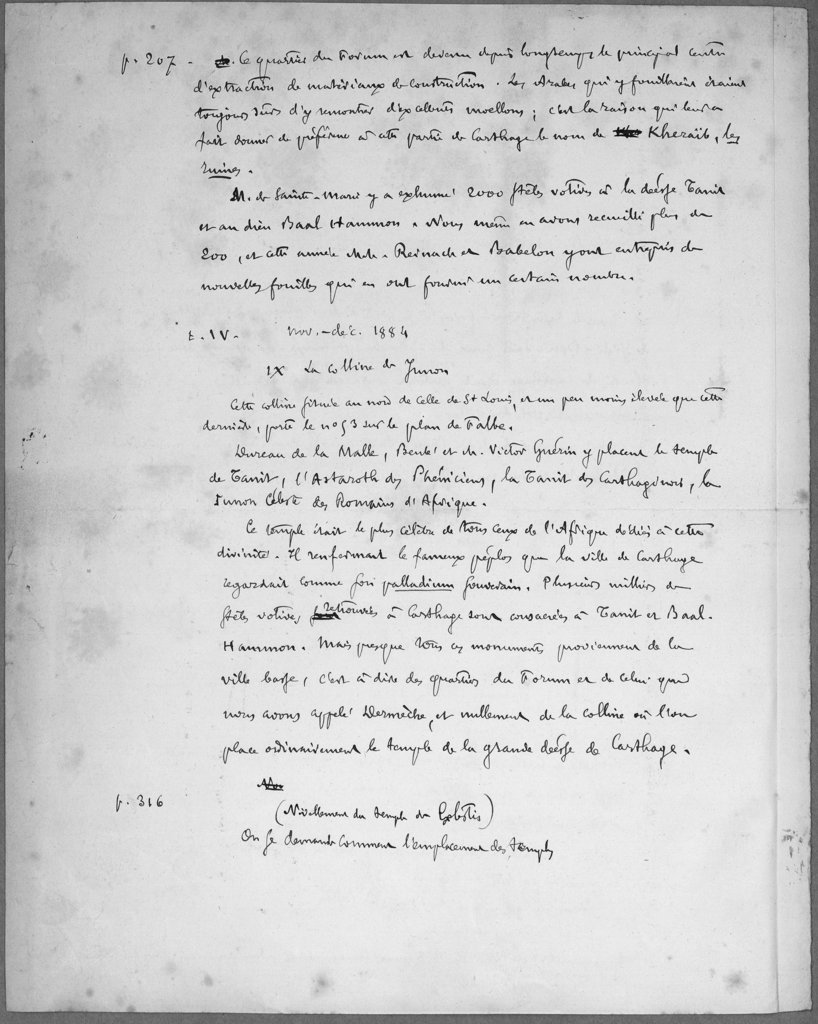 p. 207 - Ce quartier du Forum est devenu depuis longtemps le principal centre
d'extraction de matériaux de construction. Les Arabes qui y fouillaient étaient
toujours sûrs d'y rencontrer d'excellents moellons ; c'est la raison qui leur a
fait donner de préférence à cette partie de Carthage le nom de Kheraïb, les
ruines.
M. de Sainte-Marie y a exhumé 2000 stèles votives à la déesse Tanit
et au dieu Baal Hammon. Nous même en avons recueilli plus de
200, et cette année M.M. Reinach et Babelon y ont entrepris de
nouvelles fouilles qui en ont fourni un certain nombre.
t. IV. nov.-déc. 1884
IX La colline de Junon
Cette colline située au nord de celle de St Louis, et un peu moins élevée que cette
dernière, porte le no 53 sur le plan de Falbe.
Dureau de la Malle, Beulé et M. Victor Guérin y placent le temple
de Tanit, l'Astaroth des Phéniciens, la Tanit des Carthaginois, la
Junon Céleste des Romains d'Afrique.
Ce temple était le plus célèbre de tous ceux de l'Afrique dédiés à cette
divinité. Il renfermait le fameux péplos que la ville de Carthage
regardait comme son palladium souverain. Plusieurs milliers de
stèles votives retrouvées à Carthage sont consacrées à Tanit et Baal-
Hammon. Mais presque tous ces monuments proviennent de la
ville basse, c'est à dire des quartiers du Forum et de celui que
nous avons appelé Dermèche, et nullement de la colline où l'on
place ordinairement le temple de la grande déesse de Carthage.
p. 316
(Nivellement du temple de Cælestis)
On se demande comment l'emplacement des temples